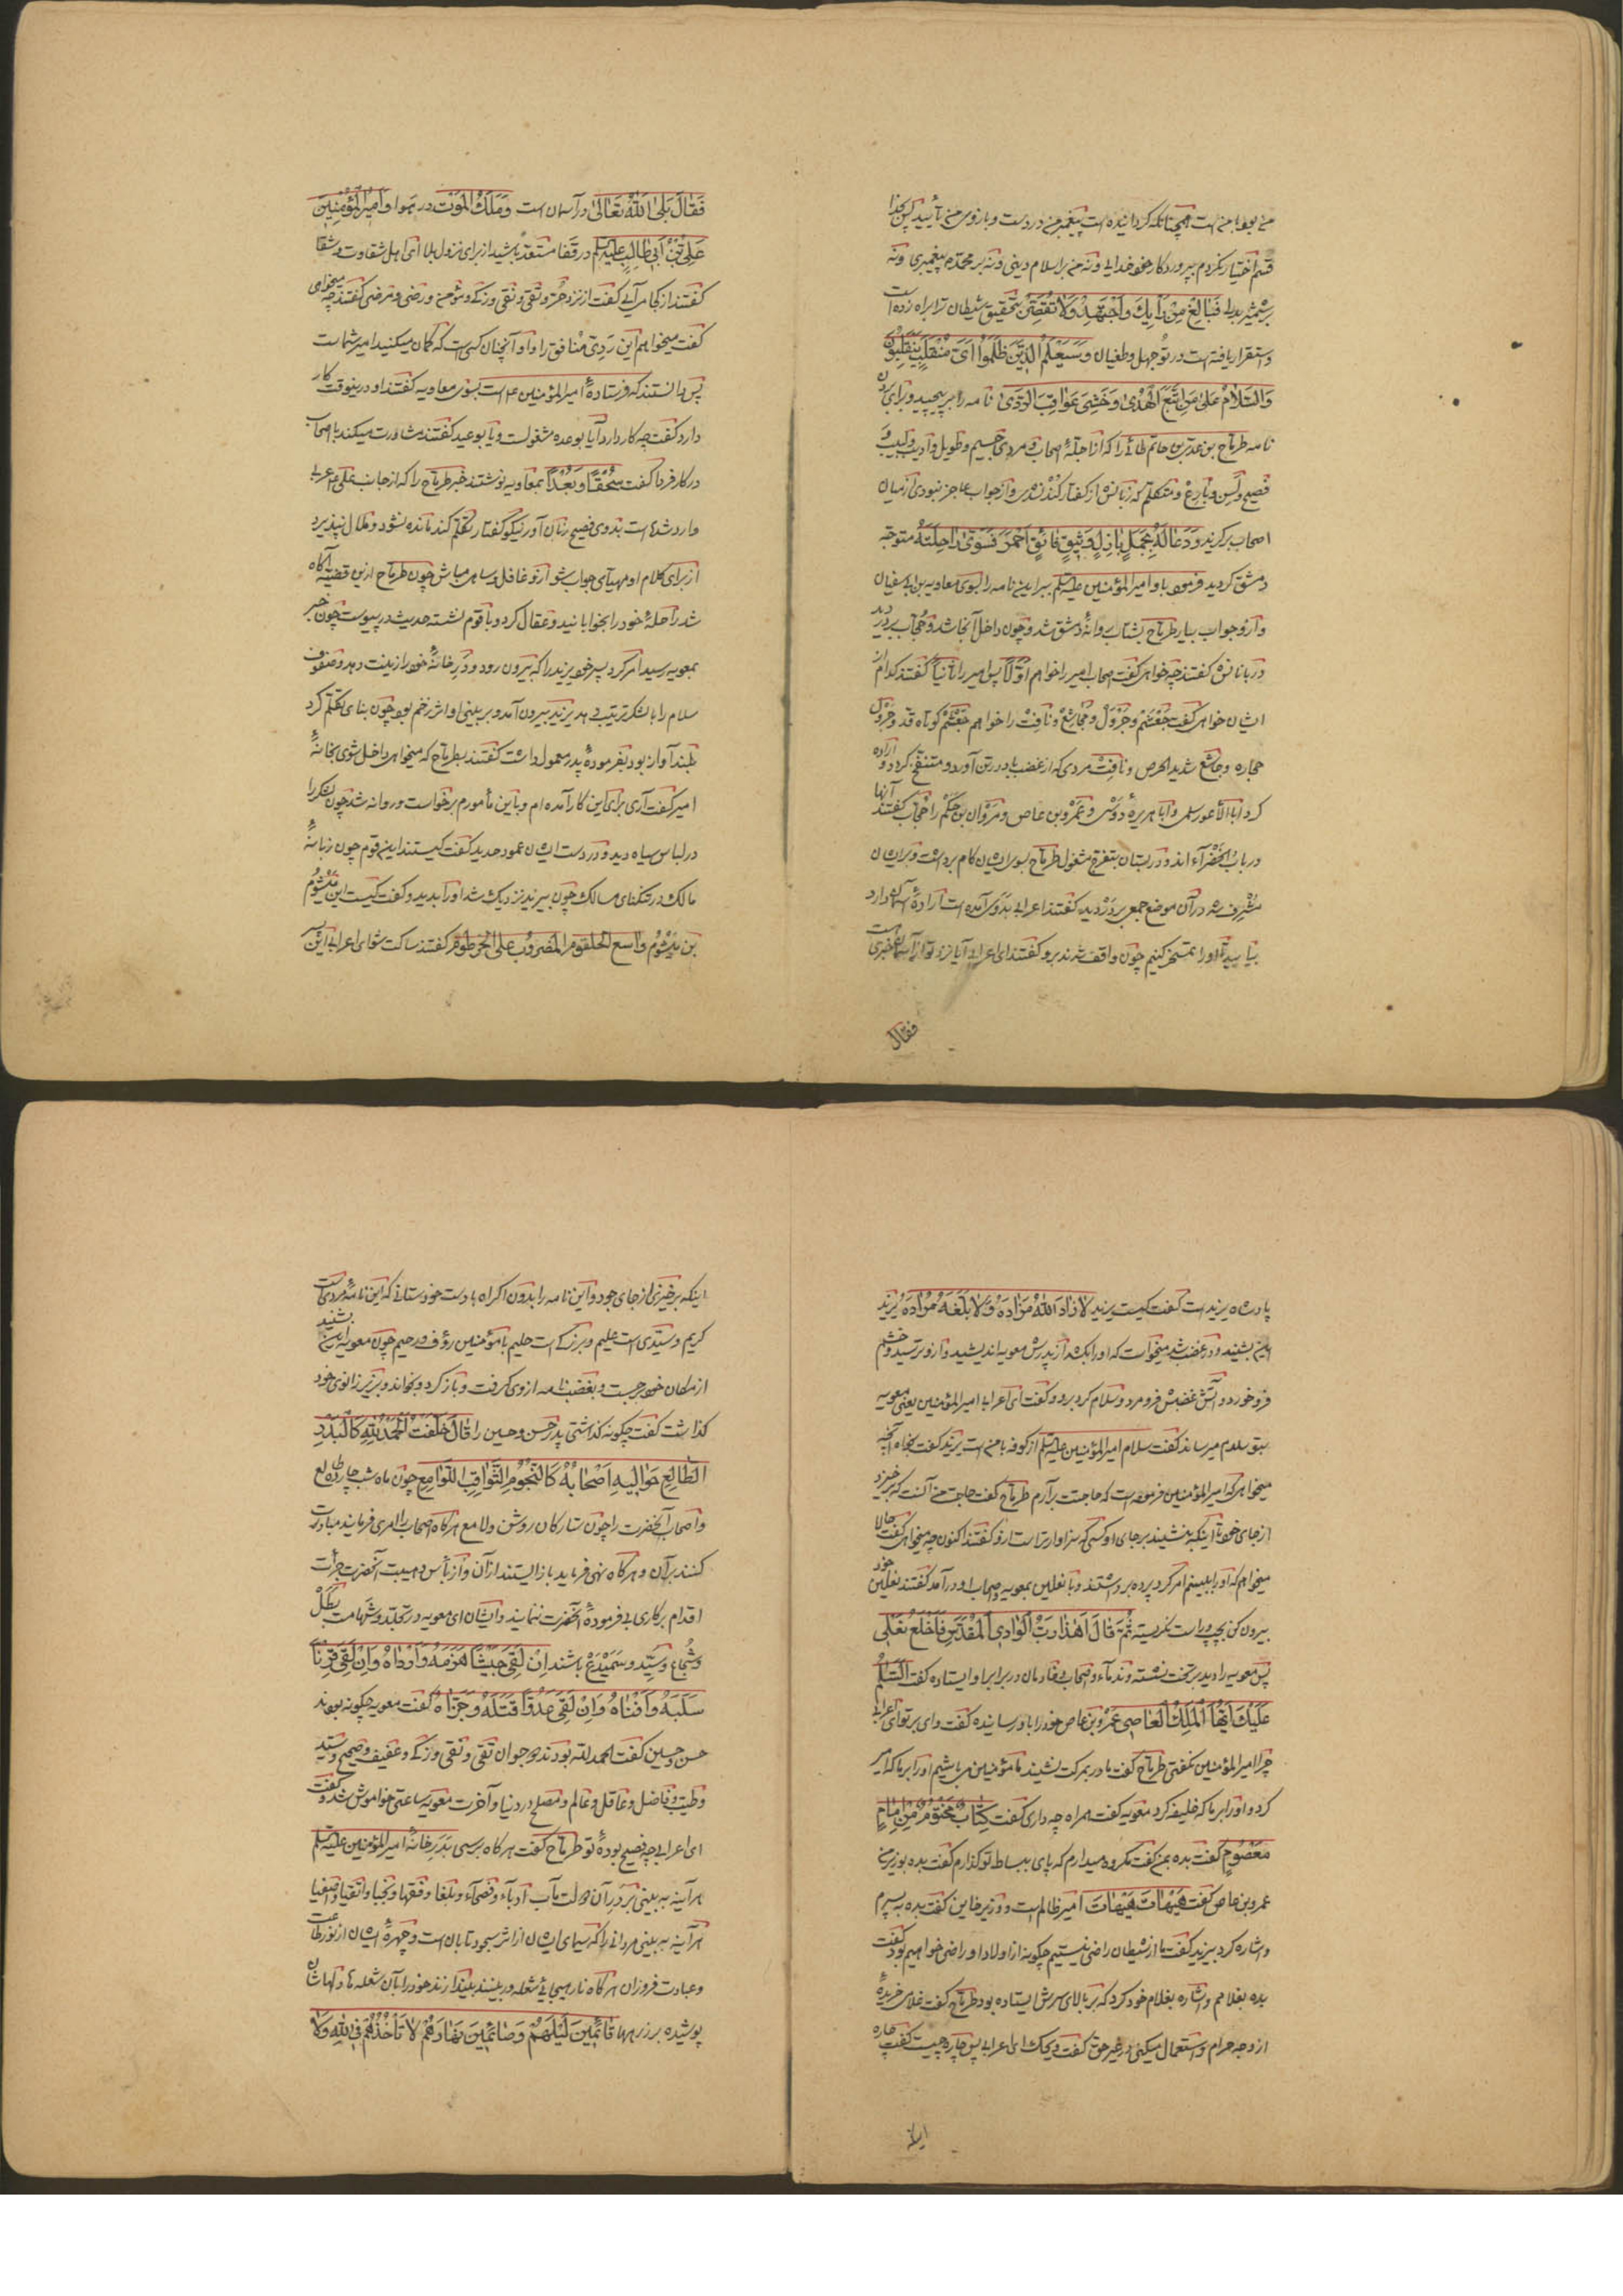 من بوده با منست همچنانکه گردانیده است پیغمبر من در دست و بازوی من تأیید پس بخدا
قسم اختیار نکردم بپروردگار خود خدایی و نه من بر اسلام دینی و نه بر محمدم پیغمبری و نه
بر شمشیر بدلی فَبَالِغْ مِنْ رَأْیِكَ وَاجْتَهِدْ وَلَا تُقَصِّرْ بتحقیق شیطان ترا براه زده است
و استقرار یافته است در تو جهل و طغیان وَسَیَعْلَمُ الَّذینَ ظَلَمُوا اَیَّ مُنْقَلَبٍ یَنْقَلِبُونَ
وَالسَّلَامُ عَلیٰ مَنِ اتَّبَعَ الْهُدیٰ وَخَشِیَ عَوَاقِبَ الرَّدیٰ نامه را بر پیچید و برای بردن
نامه طرماح بن عدی بن حاتم طائی را که از اجلهٔ اصحاب و مردی جسیم و طویل و ادیب و لبیب و
فصیح و لسن و بارع و متکلم که زبانش از گفتار کند نشدی و از جواب عاجز نبودی از میان
اصحاب برگزید وَدَعَا لَهُ بِجَمَلٍ بَازِلٍ وَثیقٍ فَائِقٍ اَحْمَرَ فَسَوّیٰ رَاحِلَتَهُ متوجه
دمشق گردید فرمود باو امیر المؤمنین علیه السلم ببر این نامه را بسوی معاویة بن ابی سفیان
و ازو جواب بیار طرماح بشتاب روانهٔ دمشق شد و چون داخل آنجا شد و حجاب بر در دید
دربانانش گفتند چه خواهی گفت اصحاب امیر را خواهم اولا پس امیر را ثانیا گفتند کدام از
ایشان خواهی گفت جعشم و جرول و مجاشع و نافث را خواهم جعشم کوتاه قد و جرول
حجاره و مجاشع شدید الحرص و نافث مردی که از غضب باد در تن آورد و منتفخ گردد و اراده
کرد ابا الأعور سلمی و ابا هریرهٔ دوسی و عمرو بن عاص و مروان بن حکم را حجاب گفتند آنها
در باب الخضرآء اند و در بستان بتفرج مشغول طرماح بسوی ایشان گام برداشت و بر ایشان
مشرف شد در آن موضع جمعی بر در دید گفتند اعرابی بدوی آمده است ارادهٔ آسمان دارد
بیایید تا او را تمسخر کنیم چون واقف شدند برو گفتند ای اعرابی آیا نزد تو از آسمان خبری است
فقال
فَقَالَ بَلیٰ اَللّٰهُ تَعَالیٰ در آسمان است وَمَلَكُ الْمَوْتِ در هوا و اَمیرُ الْمُؤْمِنینَ
عَلِیُّ بْنُ اَبی طَالِبٍ علیه السلم در قفا مستعد باشید از برای نزول بلا ای اهل شقاوت و شقا
گفتند از کجا می آیی گفت از نزد حر و تقی و نقی و زکی و مؤمن و رضی و مرضی گفتند چه میخواهی
گفت میخواهم این ردی منافق را و او آنچنان کسی است که گمان میکنید امیر شماست
پس دانستند که فرستادهٔ امیر المؤمنین ع است بسوی معاویه گفتند او درینوقت کار
دارد گفت چه کار دارد آیا بوعده مشغولست و یا بوعید گفتند مشاورت میکند با اصحاب
در کار فردا گفت سُحْقًا وَبُعْدًا بمعاویه نوشتند خبر طرماح را که از جانب علی ع اعرابی
وارد شده است بدوی فصیح زبان آور نیکو گفتار تکلم کند مانده نشود و ملال نپذیرد
از برای کلام او مهیای جواب شو ازو غافل و ساهی مباش چون طرماح ازین قضیه آگاه
شد راحلهٔ خود را بخوابانید و عقال کرد و با قوم نشسته حدیث در پیوست چون خبر
بمعویه رسید امر کرد پسر خود یزید را که بیرون رود و در خانهٔ خود را زینت دهد و صفوف
سلام را با لشکر ترتیب دهد یزید بیرون آمد و بر بینی او اثر زخم بود چون بنای تکلم کرد
بلند آواز بود بفرمودهٔ پدر معمول داشت گفتند بطرماح که میخواهی داخل شوی بخانهٔ
امیر گفت آری برای این کار آمده ام و باین مأمورم برخواست و روانه شد چون لشکر را
در لباس سیاه دید و در دست ایشان عمود حدید گفت کیستند این قوم چون زبانهٔ
مالک در تنگنای مسالک چون بیزید نزدیک شد او را بدید و گفت کیست این میشوم
بن میشوم واسع الحلقوم المضروب علی الخرطوم گفتند ساکت شو ای اعرابی این
پادشاه یزید است گفت کیست یزید لَا زَادَ اللّٰهُ مَزَادَهُ وَلَا بَلَّغَهُ مُرَادَهُ یزید
این بشنید و در غضب شد میخواست که او را بکشد از پدرش معویه اندیشید و ازو ترسید و خشم
فرو خورد و آتش غضبش فرو مرد و سلام کرد برو و گفت ای اعرابی امیر المؤمنین یعنی معویه
بتو سلام میرساند گفت سلام امیر المؤمنین علیه السلم از کوفه با من است یزید گفت بخواه آنچه
میخواهی که امیر المؤمنین فرموده است که حاجتت برآرم طرماح گفت حاجت من آنست که برخیزد
از جای خود تا اینکه بنشیند بر جای او کسی که سزاوارتر است ازو گفتند اکنون چه میخواهی گفت حالا
میخواهم که او را ببینم امر کرد پرده برداشتند و با نعلین بمعویه و اصحاب او در آمد گفتند نعلین خود
بیرون کن بچپ و راست نگریسته ثُمَّ قَالَ اَهٰذَا رَبُّ الْوَادِی الْمُقَدَّسِ فَاَخْلَعَ نَعْلَیَّ
پس معویه را دید بر تخت نشسته و ندمآء و اصحاب و خادمان در برابر او ایستاده گفت اَلسَّلٰمُ
عَلَیْكَ اَیُّهَا الْمَلِكُ الْعَاصی عمرو بن عاص خود را باو رسانیده گفت وای بر تو ای اعرابی
چرا امیر المؤمنین نگفتی طرماح گفت مادر بمرگت نشیند ما مؤمنین می باشیم او را بر ما که امیر
کرد و او را بر ما که خلیفه کرد معویه گفت همراه چه داری گفت کِتَابٌ مَخْتُومٌ مِنْ اِمَامٍ
مَعْصُومٍ گفت بده بمن گفت مکروه میدارم که پای ببساط تو گذارم گفت بده بوزیر من
عمرو بن عاص گفت هَیْهَاتَ هَیْهَاتَ امیر ظالم است و وزیر خاین گفت بده به پسرم
و اشاره کرد بیزید گفت ما از شیطان راضی نیستیم چگونه از اولاد او راضی خواهیم بود گفت
بده بغلامم و اشاره بغلام خود کرد که بر بالای سرش ایستاده بود طرماح گفت غلامی خریدهٔ
از وجه حرام و استعمال میکنی در غیر حق گفت ویحک ای اعرابی پس چاره چیست گفت چاره
اینکه
اینکه برخیزی از جای خود و این نامه را بدون اکراه بدست خود ستانی که این نامهٔ مردیست
کریم و سیّدی است علیم و بزرگی است حلیم با مؤمنین رؤف و رحیم چون معویه این بشنید
از مکان خود برجست و بغضب نامه از وی گرفت و باز کرد و بخواند و بزیر زانوی خود
گذاشت گفت چگونه گذاشتی پدر حسن و حسین را قَالَ خَلَّفْتُ الْحَمْدُ لِلّٰهِ كَالْبَدْرِ
الطَّالِعِ حَوَالَیْهِ اَصْحَابُهُ كَالنُّجُومِ الثَّوَاقِبِ اللَّوَامِعِ چون ماه شب چارده طالع
و اصحاب آنحضرت را چون ستارگان روشن و لامع هرگاه اصحاب را امری فرمایند مبادرت
کنند بر آن و هرگاه نهی فرماید باز ایستند از آن و از بأس و هیبت آنحضرت جرأت
اقدام بر کاری بی فرمودهٔ آنحضرت ننمایند و ایشان ای معویه در تجلد و شهامت بطل
و شجاع و سیّد و سمیدع باشند اِنْ لَقِیَ جَیْشًا هَزَمَهُ وَاَرْدَاهُ وَاِنْ لَقِیَ قِرْنًا
سَلَبَهُ وَاَفْنَاهُ وَاِنْ لَقِیَ عَدُوًّا قَتَلَهُ وَجَزَاهُ گفت معویه چگونه بودند
حسن و حسین گفت الحمد لله بودند دو جوان تقی و نقی و زکی و عفیف و صحیح و سیّد
و طیّب و فاضل و عاقل و عالم و مصلح در دنیا و آخرت معویه ساعتی خواموش شد و گفت
ای اعرابی چه فصیح بودهٔ تو طرماح گفت هرگاه برسی بدر خانهٔ امیر المؤمنین علیه السلم
هرآینه به بینی بر در آن دولت مآب ادبآء و فصحآء و بلغا و فقها و نجبا و اتقیا و اصفیا
هرآینه به بینی مردانی را که سیمای ایشان از اثر سجود تابان است و چهرهٔ ایشان از نور طاعت
و عبادت فروزان هرگاه نار هیجائی شعله ور بینند بیندازند خود را بآن شعله ها و دلهاشان
پوشیده بر زرهها قَائِمینَ لَیْلَهُمْ وَصَائِمینَ نَهَارَهُمْ لَا تَأْخُذُهُمْ فِی اللّٰهِ وَلَا